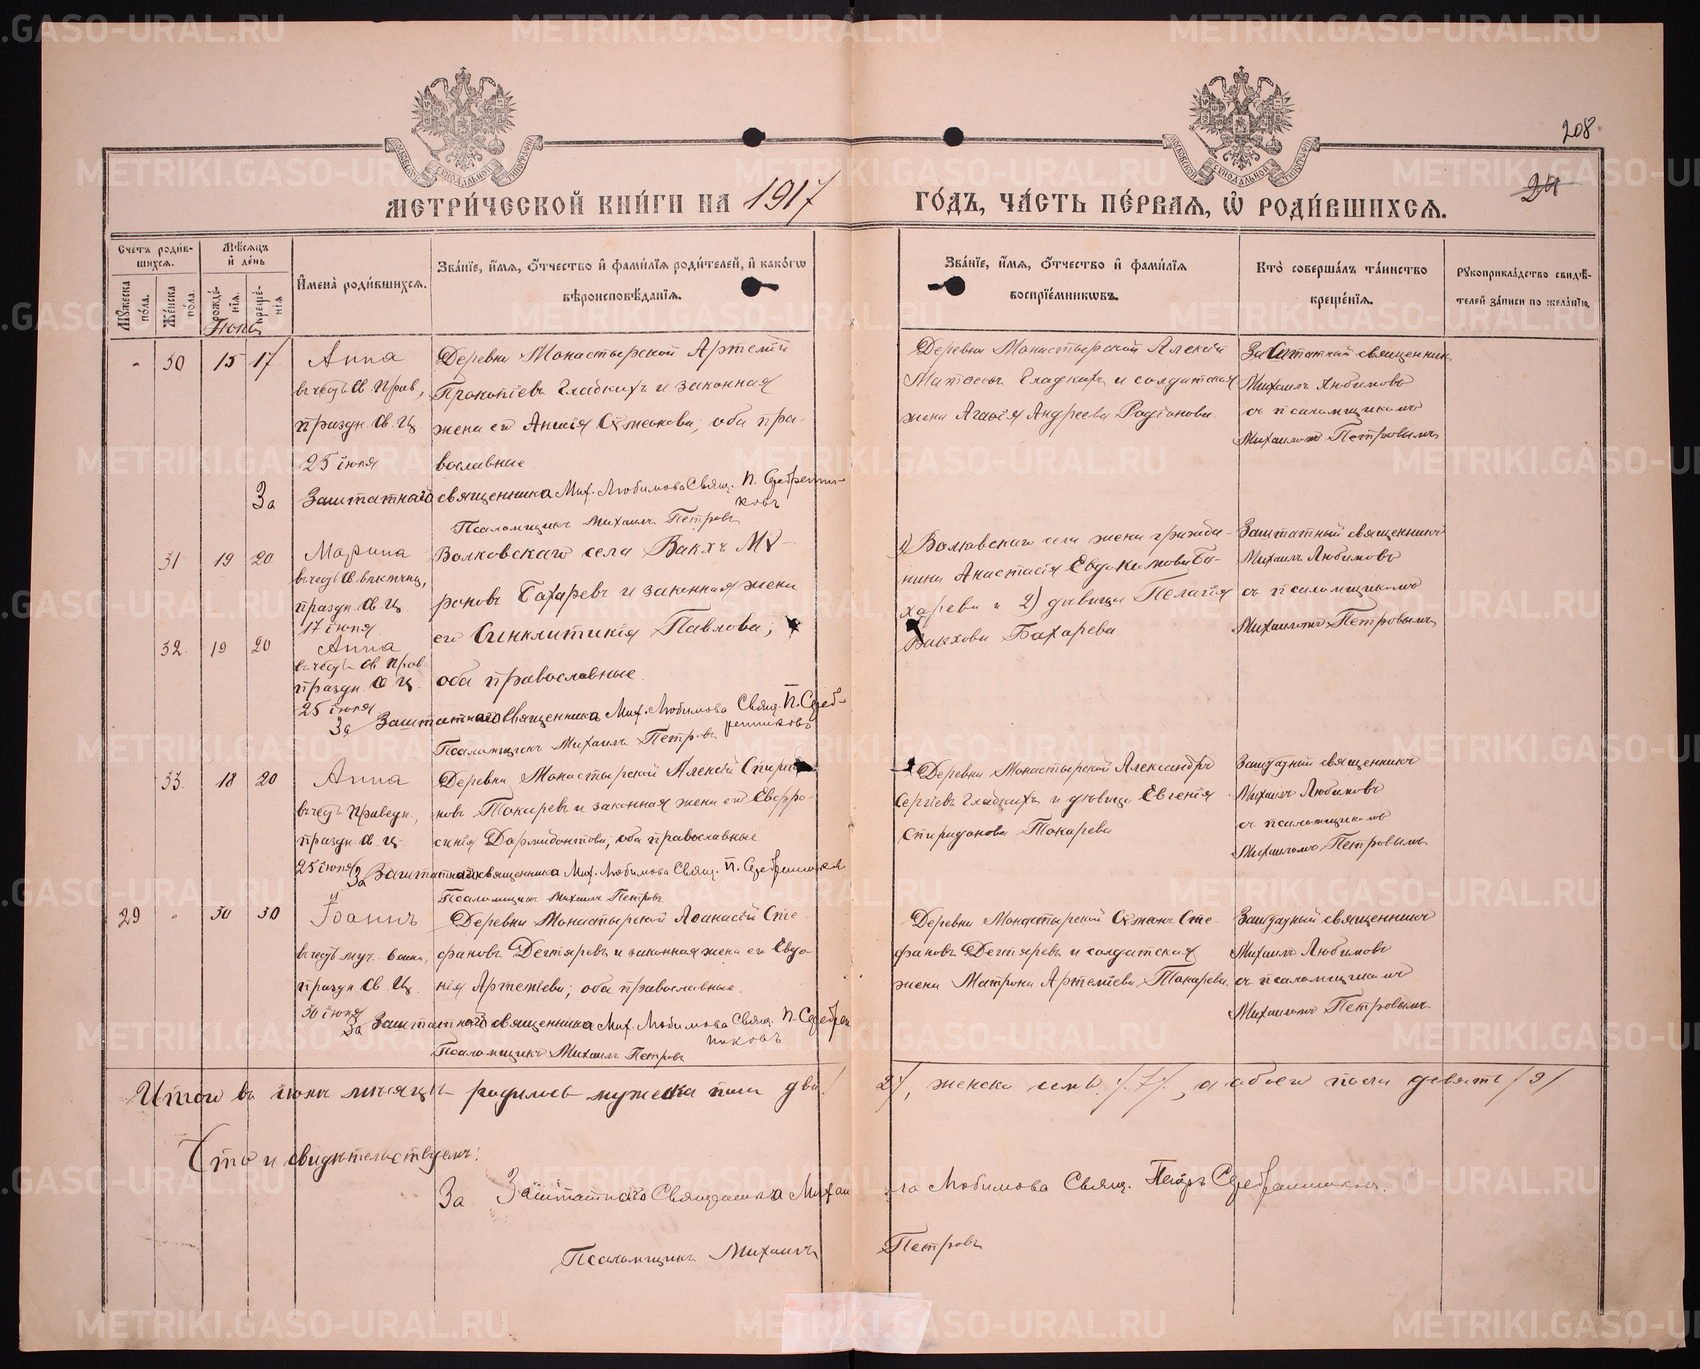 208
24
МЕТРИ́ЧЕСКОЙ КНИ́ГИ НА 1917 ГО́ДЪ, ЧА́СТЬ ПЕ́РВАЯ, Ѡ҆ РОДИ́ВШИХСЯ.
Сче́тъ роди́вшихся.
Мꙋ́жеска по́ла.
Же́нска по́ла.
Мѣ́сяцъ и҆ де́нь
рожде́нїя.
креще́нїя
И҆мена̀ роди́вшихся.
Зва́нїе, и҆́мя, ѻ҆́тчество и҆ фами́лїя роди́телей, и҆ како́гѡ вѣроисповѣ́данїя.
Зва́нїе, и҆́мя, ѻ҆́тчество и҆ фами́лїя воспрїе́мникѡвъ.
Кто̀ соверша́лъ та́инство креще́нїя.
Рꙋкоприкла́дство свидѣ́телей за́писи по жела́нїю.
Іюнь
" 30 15 17
Анна
въ честь св. прав,
праздн. св. ц.
25 іюня
Деревни Монастырской Артемій
Прокопіевъ Гладкихъ и законная
жена его Анисія Сѵмеонова, оба пра-
вославные
Деревни Монастырской Алексій
Гладкихъ и солдатская
жена Агафія Андреева Родіонова.
Заштатный священникъ
Михаилъ Любимовъ
съ псаломщикомъ
Михаиломъ Петровымъ
За Заштатнаго священника Мих. Любимова Свящ. П. Серебренни-
ковъ
Псаломщикъ Михаилъ Петровъ
31 19 20
Марина
въ честь св.
праздн. св. ц.
17 іюня
32. 19 20
Анна
въ честь св. прав.
праздн. св. ц.
25 іюня
Волковскаго села Вакхъ Мѵ-
роновъ Бахаревъ и законная жена
его Сѵнклитикія Павлова;
оба православные.
1) Волковскаго села жена гражда-
нина Анастасія Евдокимова Ба-
харева и 2) дѣвица Пелагія
Вакхова Бахарева
Заштатный священникъ
Михаилъ Любимовъ
съ псаломщикомъ
Михаиломъ Петровымъ
За Заштатнаго Священника Мих. Любимова Свящ. П. Сереб-
ренниковъ
Псаломщикъ Михаилъ Петровъ
33. 18 20
Анна
въ честь праведн,
праздн. св. ц.
25 іюня
Деревни Монастырской Алексій Спиридо-
новъ Токаревъ и законная жена его Евфро-
синія Дормидонтова; оба православные
Деревни Монастырской Александръ
Сергіевъ Гладкихъ и дѣвица Евгенія
Спиридонова Токарева
Заштатный священникъ
Михаилъ Любимовъ
съ псаломщикомъ
Михаиломъ Петровымъ
За Заштатнаго священника Мих. Любимова Свящ. П. Серебренниковъ
Псаломщикъ Михаилъ Петровъ
29 " 30 30
Іоаннъ
въ честь муч. воина,
праздн. св. ц.
30 іюня
Деревни Монастырской Аѳанасій Сте-
фановъ Дегтяревъ и законная жена его Евдо-
кія Артеміева; оба православные.
Деревни Монастырской Сѵмеонъ Сте-
фановъ Дегтяревъ и солдатская
жена Матрона Артеміева Токарева.
Заштатный священникъ
Михаилъ Любимовъ
съ псаломщикомъ
Михаиломъ Петровымъ
За Заштатнаго священника Мих. Любимова Свящ. П. Серебрен
никовъ
Псаломщикъ Михаилъ Петровъ
Итого въ іюнѣ мѣсяцѣ родилось мужеска пола два / 2/, женска семь /7/, а обоего пола девять /9/
Что и свидѣтельствуемъ:
За Заштатнаго Священника Михаила Любимова Свящ. Петръ Серебренниковъ.
Псаломщикъ Михаилъ Петровъ
METRIKI.GASO-URAL.RU